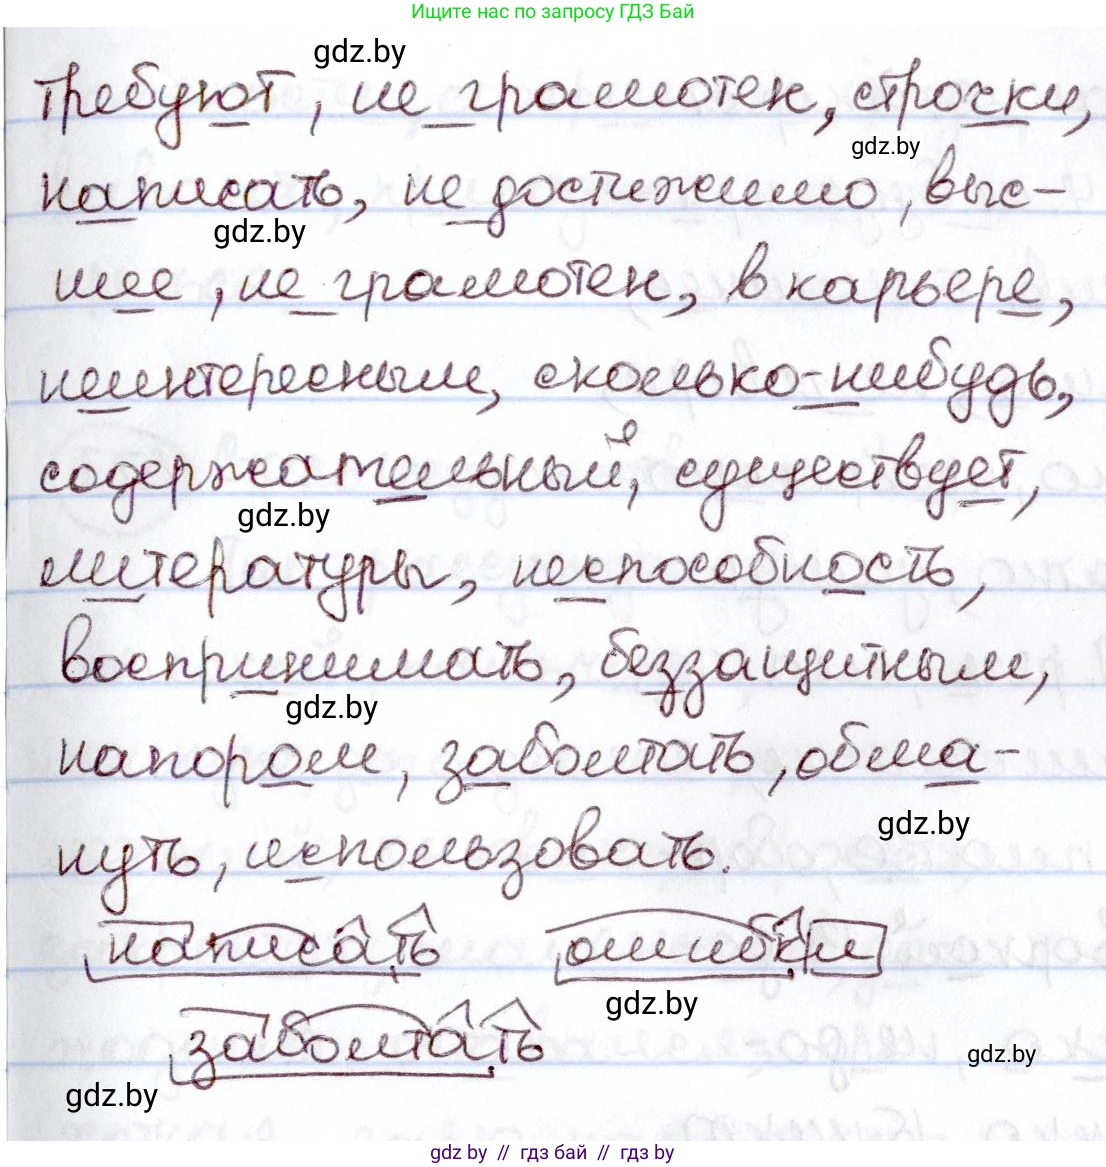 Ищите нас по запросу ГДЗ Бай
gdz.by
требуют, не грамотен, строчки,
gdz.by
написать, не достижимо, выс-
gdz.by
шее, не грамотен, в карьере,
неинтересным, сколько-нибудь,
содержательный, существует,
gdz.by
литературы, неспособность,
воспринимать, беззащитным,
gdz.by
напором, заболтать, обма-
gdz.by
нуть, использовать.
написать ошибки
gdz.by
заболтать
gdz.by
gdz.by
gdz by // гдз бай // gdz by